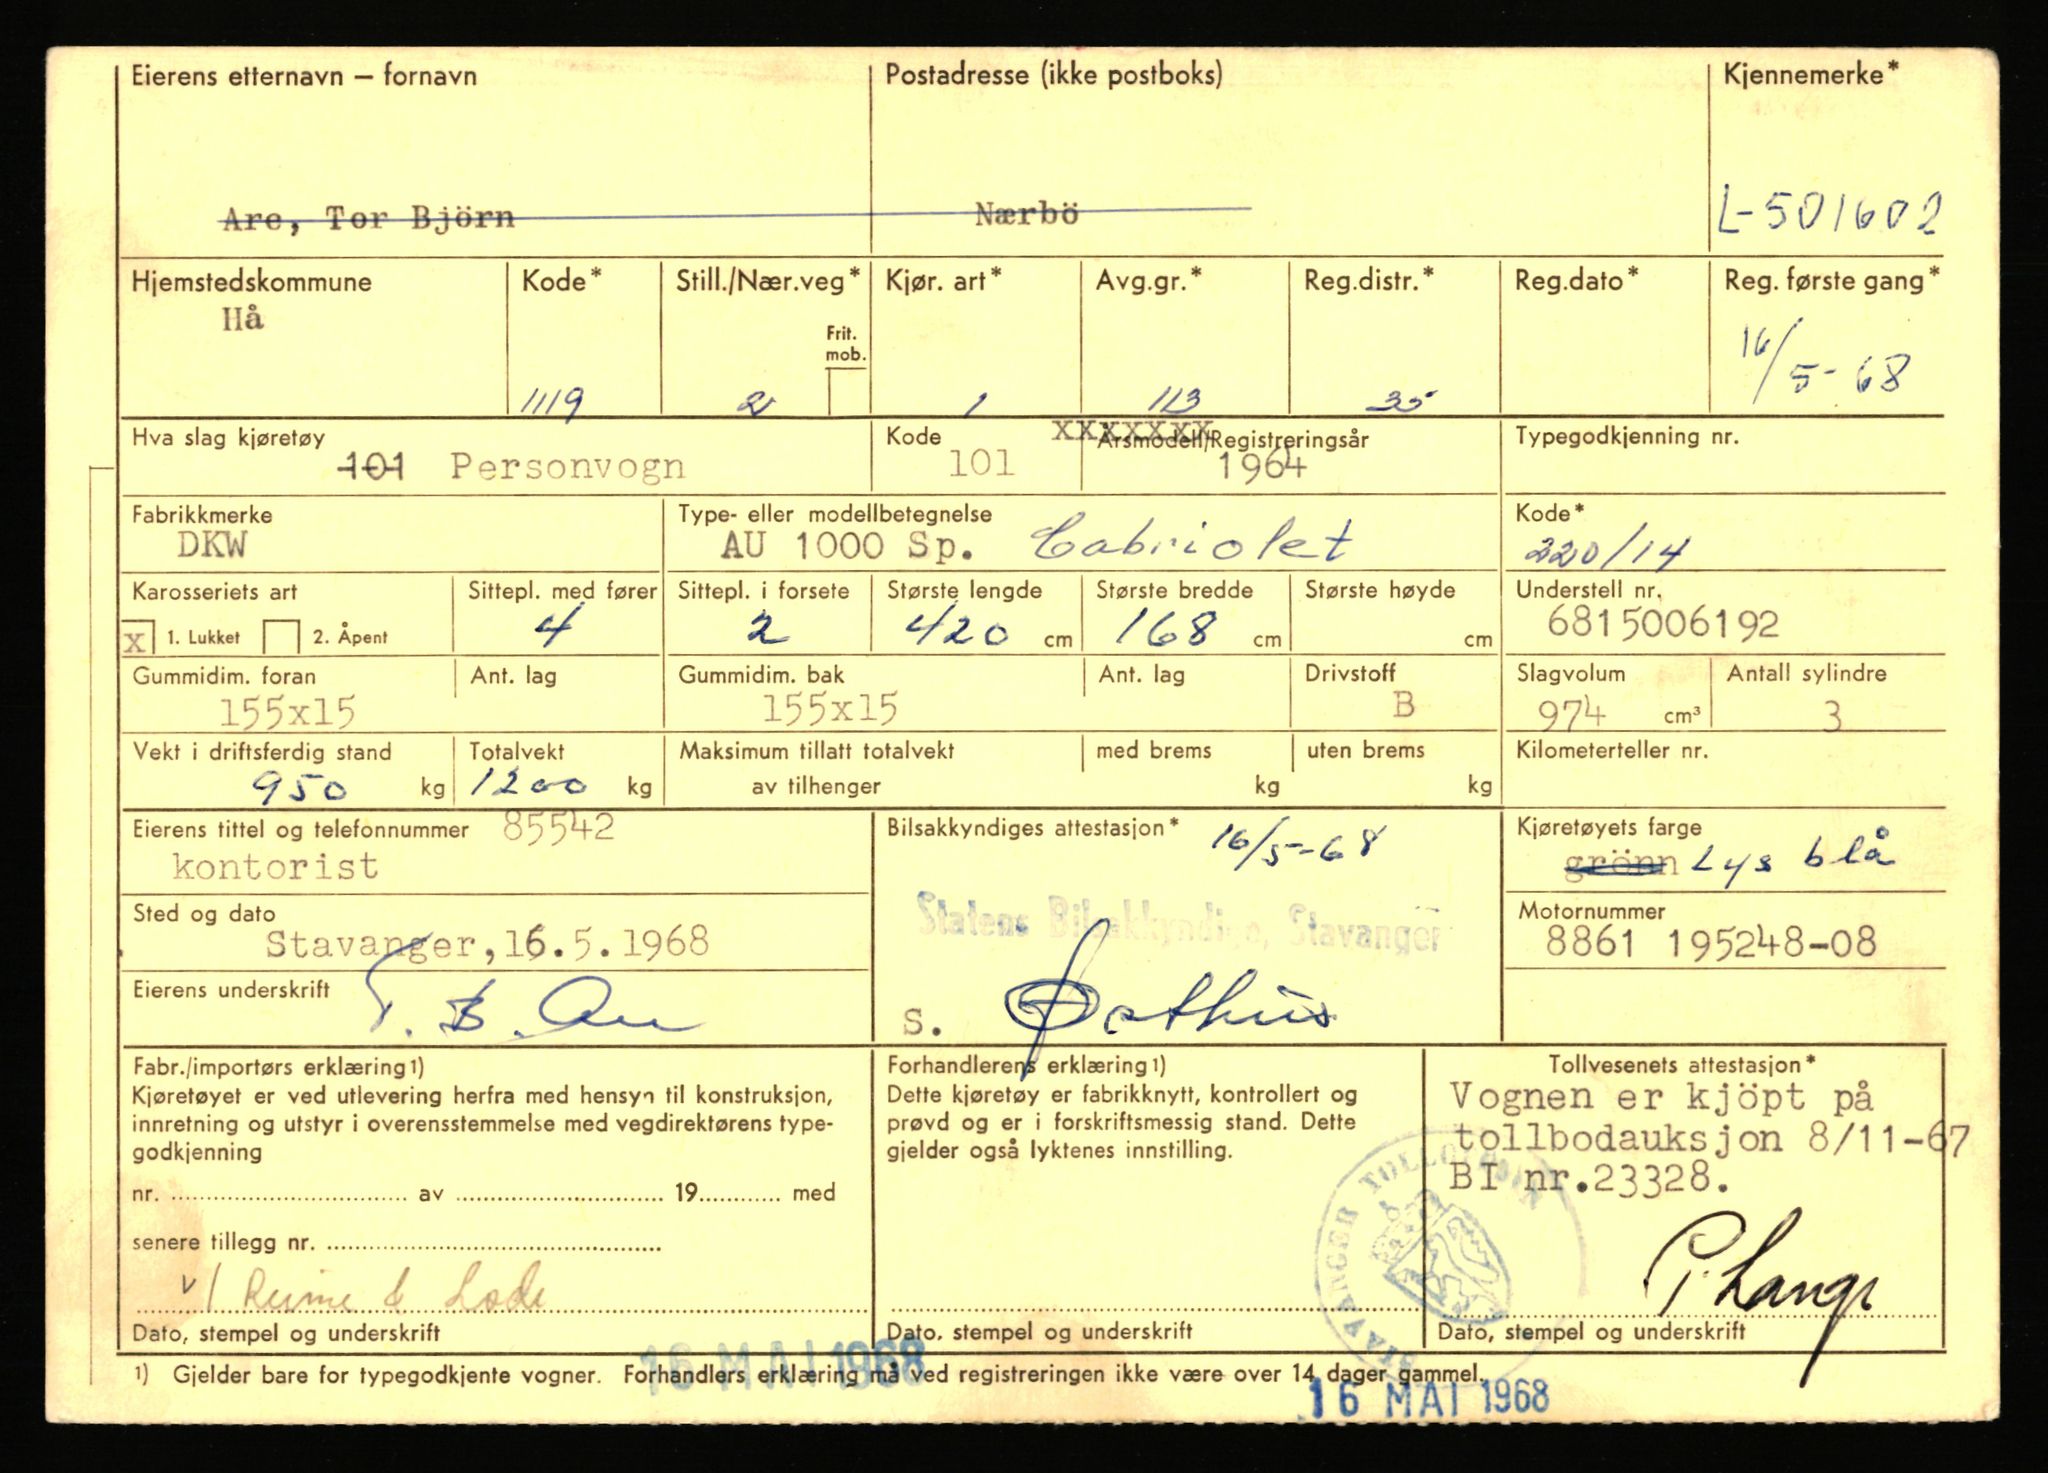 Eierens etternavn – fornavn
Postadresse (ikke postboks)
Kjennemerke*
Are, Tor Björn
Nærbö
L-501602
Hjemstedskommune
Kode*
Still./Nær.veg*
Kjør. art*
Avg.gr.*
Reg.distr.*
Reg.dato*
Reg. første gang*
Hå
Frit. mob.
1119
2
1
113
35
16/5-68
Hva slag kjøretøy
Kode
xxxxxxx
Årsmodell/Registreringsår
Typegodkjenning nr.
101 Personvogn
101
1964
Fabrikkmerke
Type- eller modellbetegnelse
Kode*
DKW
AU 1000 Sp. Cabriolet
220/14
Karosseriets art
Sittepl. med fører
Sittepl. i forsete
Største lengde
Største bredde
Største høyde
Understell nr.
X 1. Lukket 2. Åpent
4
2
420 cm
168 cm
cm
6815006192
Gummidim. foran
Ant. lag
Gummidim. bak
Ant. lag
Drivstoff
Slagvolum
Antall sylindre
155x15
155x15
B
974 cm³
3
Vekt i driftsferdig stand
Totalvekt
Maksimum tillatt totalvekt
med brems
uten brems
Kilometerteller nr.
950 kg
1200 kg
av tilhenger
kg
kg
Eierens tittel og telefonnummer 85542
Bilsakkyndiges attestasjon* 16/5-68
Kjøretøyets farge
kontorist
grönn Lys blå
Sted og dato
Statens Bilsakkyndige, Stavanger
Motornummer
Stavanger,16.5.1968
8861 195248-08
Eierens underskrift
T. B. Are
S.
Fabr./importørs erklæring 1)
Kjøretøyet er ved utlevering herfra med hensyn til konstruksjon,
innretning og utstyr i overensstemmelse med vegdirektørens type-
godkjenning
nr. av 19 med
senere tillegg nr.
Dato, stempel og underskrift
Forhandlerens erklæring 1)
Dette kjøretøy er fabrikknytt, kontrollert og
prøvd og er i forskriftsmessig stand. Dette
gjelder også lyktenes innstilling.
Dato, stempel og underskrift
Tollvesenets attestasjon*
Vognen er kjöpt på
tollbodauksjon 8/11-67
BI nr.23328.
P. Lange
Dato, stempel og underskrift
STAVANGER
16 MAI 1968
1) Gjelder bare for typegodkjente vogner. Forhandlers erklæring må ved registreringen ikke være over 14 dager gammel.
16 MAI 1968